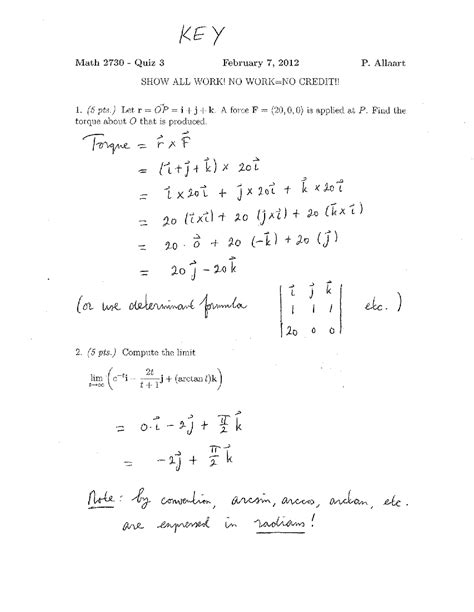 KEY
Math 2730 - Quiz 3 February 7, 2012 P. Allaart
SHOW ALL WORK! NO WORK=NO CREDIT!!
1. (5 pts.) Let r = O⃗P = i + j + k. A force F = ⟨20, 0, 0⟩ is applied at P. Find the
torque about O that is produced.
Torque = r⃗ × F⃗
= (i⃗ + j⃗ + k⃗) × 20i⃗
= i⃗ × 20i⃗ + j⃗ × 20i⃗ + k⃗ × 20i⃗
= 20 (i⃗×i⃗) + 20 (j⃗×i⃗) + 20 (k⃗×i⃗)
= 20 · 0⃗ + 20 (-k⃗) + 20 (j⃗)
= 20j⃗ - 20k⃗
(or use determinant formula | i⃗ j⃗ k⃗ | etc. )
| 1 1 1 |
| 20 0 0 |
2. (5 pts.) Compute the limit
lim t→∞ (e^-t i - 2t/(t+1) j + (arctan t)k)
= 0·i⃗ - 2j⃗ + π/2 k⃗
= -2j⃗ + π/2 k⃗
Note: by convention, arcsin, arccos, arctan, etc.
are expressed in radians!